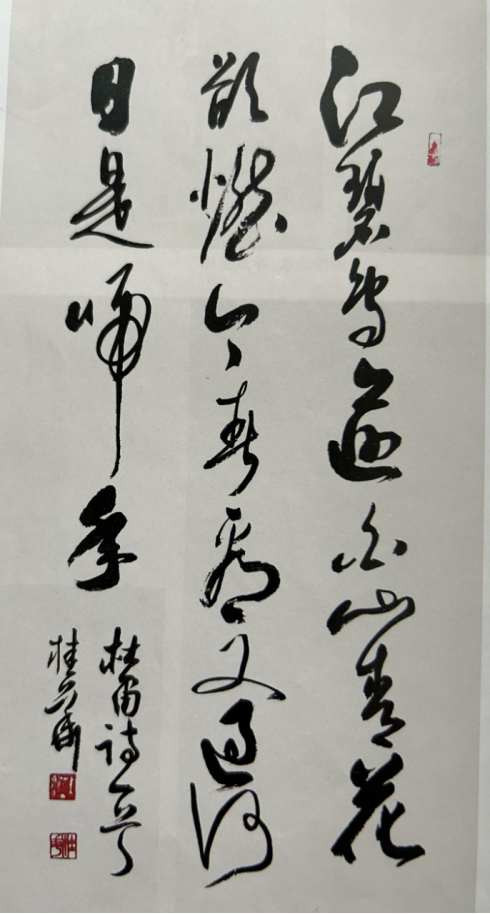 江碧鸟逾白山青花
欲燃今春看又过何
日是归年
杜甫诗一首
桂